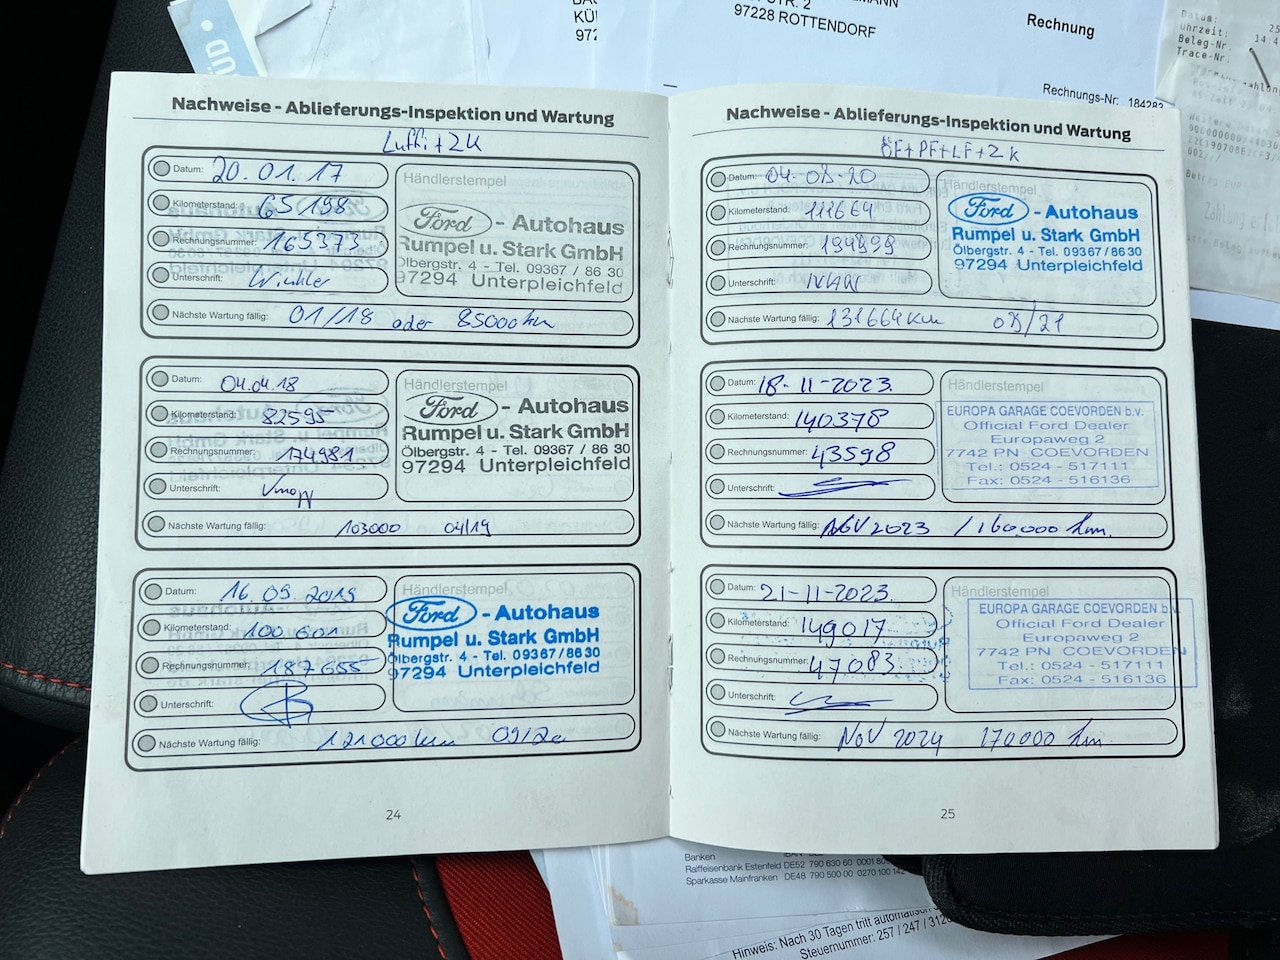 STR. 2
97228 ROTTENDORF
Rechnung
Rechnungs-Nr: 184283
Datum:
Uhrzeit:
Beleg-Nr.
Trace-Nr.
Nachweise - Ablieferungs-Inspektion und Wartung
Luffi+ZK
Datum: 20.01.17
Kilometerstand: 65198
Rechnungsnummer: 165373
Unterschrift: Winkler
Händlerstempel
Ford - Autohaus
Rumpel u. Stark GmbH
Ölbergstr. 4 - Tel. 09367 / 86 30
97294 Unterpleichfeld
Nächste Wartung fällig: 01/18 oder 85000 km
Datum: 04.04.18
Kilometerstand: 82595
Rechnungsnummer: 174981
Unterschrift:
Händlerstempel
Ford - Autohaus
Rumpel u. Stark GmbH
Ölbergstr. 4 - Tel. 09367 / 86 30
97294 Unterpleichfeld
Nächste Wartung fällig: 103000 04/19
Datum: 16.09.2019
Kilometerstand: 100 601
Rechnungsnummer: 187655
Unterschrift:
Händlerstempel
Ford - Autohaus
Rumpel u. Stark GmbH
Ölbergstr. 4 - Tel. 09367 / 86 30
97294 Unterpleichfeld
Nächste Wartung fällig: 121000 km 09/20
24
Nachweise - Ablieferungs-Inspektion und Wartung
ÖF+PF+LF+ZK
Datum: 04.08.20
Kilometerstand: 111664
Rechnungsnummer: 194899
Unterschrift:
Händlerstempel
Ford - Autohaus
Rumpel u. Stark GmbH
Ölbergstr. 4 - Tel. 09367 / 86 30
97294 Unterpleichfeld
Nächste Wartung fällig: 131664 km 08/21
Datum: 18-11-2023
Kilometerstand: 140378
Rechnungsnummer: 43598
Unterschrift:
Händlerstempel
EUROPA GARAGE COEVORDEN b.v.
Official Ford Dealer
Europaweg 2
7742 PN COEVORDEN
Tel.: 0524 - 517111
Fax: 0524 - 516136
Nächste Wartung fällig: NOV 2023 / 160.000 km.
Datum: 21-11-2023
Kilometerstand: 149017
Rechnungsnummer: 47083
Unterschrift:
Händlerstempel
EUROPA GARAGE COEVORDEN b.v.
Official Ford Dealer
Europaweg 2
7742 PN COEVORDEN
Tel.: 0524 - 517111
Fax: 0524 - 516136
Nächste Wartung fällig: NOV 2024 170000 km
25
Banken
Raiffeisenbank Estenfeld DE52 790 630 60 0001 80
Sparkasse Mainfranken DE48 790 500 00 0270 100 142
Hinweis: Nach 30 Tagen tritt automatisch
Steuernummer: 257 / 247 / 3120